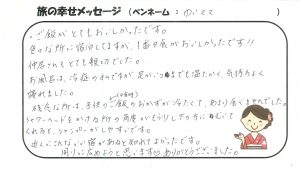 旅の幸せメッセージ (ペンネーム：ゆいママ )
・ご飯がとてもおいしかったです。
色々な所に宿泊してますが、1番夕飯がおいしかったです!!
仲居さんもとても親切でした。
お風呂は、冷症のせいですが、足がいつまでも温たかく、気持ちよく
帰れました。
残念な所は、子供のご飯のおかずが冷たくて、あまり食べませんでした。
シャワーヘッドをかける所の角度がどうりした方にむいて
くれると、シャンプーがしやすいです。
近くにこんないい宿があると知れてよかったです。
周りに広めようと思います♡ ありがとうございました。